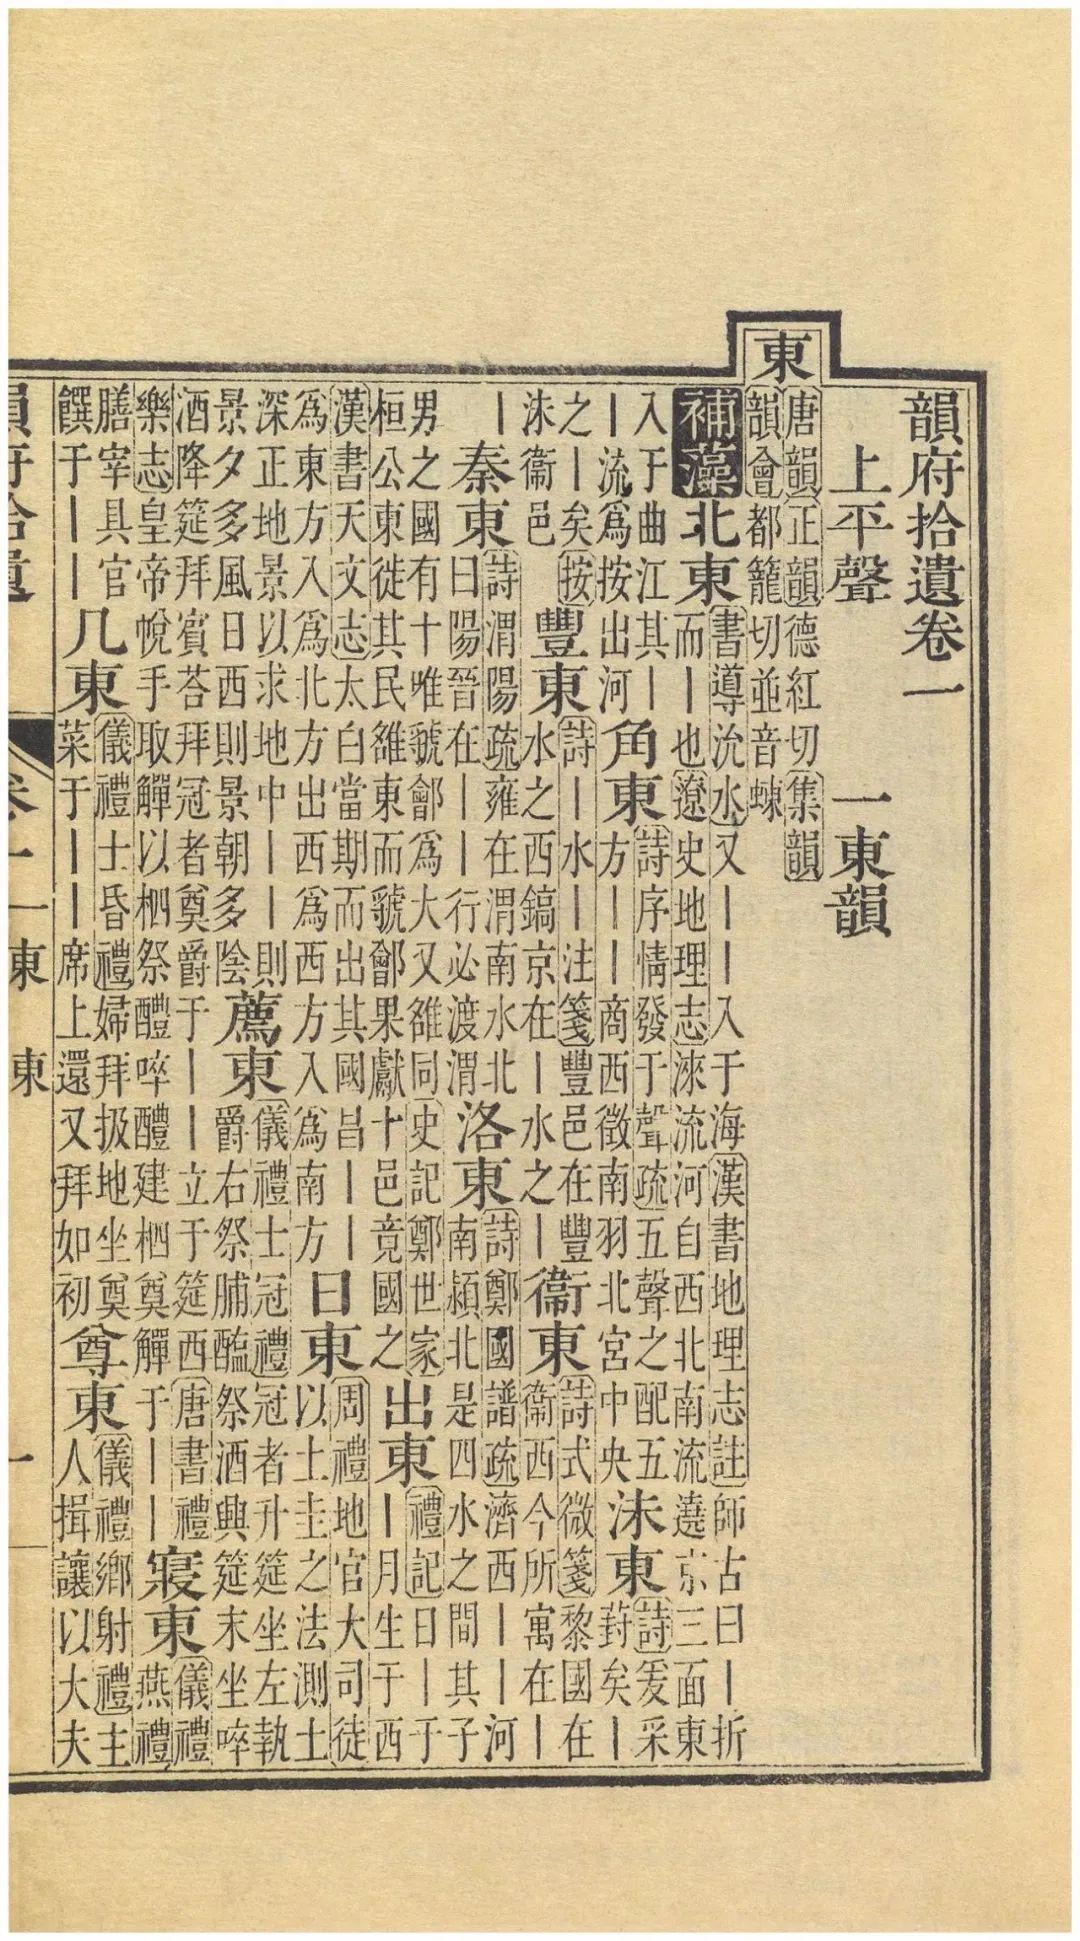 韻府拾遺卷一
上平聲　一東韻
東
唐韻正韻德紅切集韻
韻會都籠切並音蝀
補藻
北東
書導沇水又丨丨入于海漢書地理志註師古曰丨折
而丨也遼史地理志淶流河自西北南流遶京三面東
入于曲江其丨
丨流為按出河
角東
詩序情發于聲疏五聲之配五
方丨丨丨商西徵南羽北宮中央
沬東
詩爰采
葑矣丨
之丨矣按
沬衞邑
豐東
詩丨水丨丨注箋豐邑在豐
水之西鎬京在丨水之丨
衞東
詩式微箋黎國在
衞西今所寓在丨
丨
秦東
詩渭陽疏雍在渭南水北
曰陽晉在丨行必渡渭
洛東
詩鄭國譜疏濟西丨河
南潁北是四水之間其子
男之國有十唯虢鄶為大又雒同史記鄭世家
桓公東徙其民雒東而虢鄶果獻十邑竟國之
出東
禮記日丨于
丨月生于西
漢書天文志太白當期而出其國昌丨丨
為東方入為北方出西為西方入為南方
日東
周禮地官大司徒
以土圭之法測土
深正地景以求地中丨則
景夕多風日西則景朝多陰
薦東
儀禮士冠禮冠者升筵坐左執
爵右祭脯醢祭酒興筵末坐啐
酒降筵拜賓荅拜冠者奠爵于丨丨立于筵西唐書禮
樂志皇帝帨手取觶以柶祭醴啐醴建柶奠觶于丨丨
寢東
儀禮
燕禮
膳宰具官
饌于丨丨
几東
儀禮士昏禮婦拜扱地坐奠
菜于丨丨席上還又拜如初
尊東
儀禮鄉射禮主
人揖讓以大夫
韻府拾遺　卷一　一東　東　一